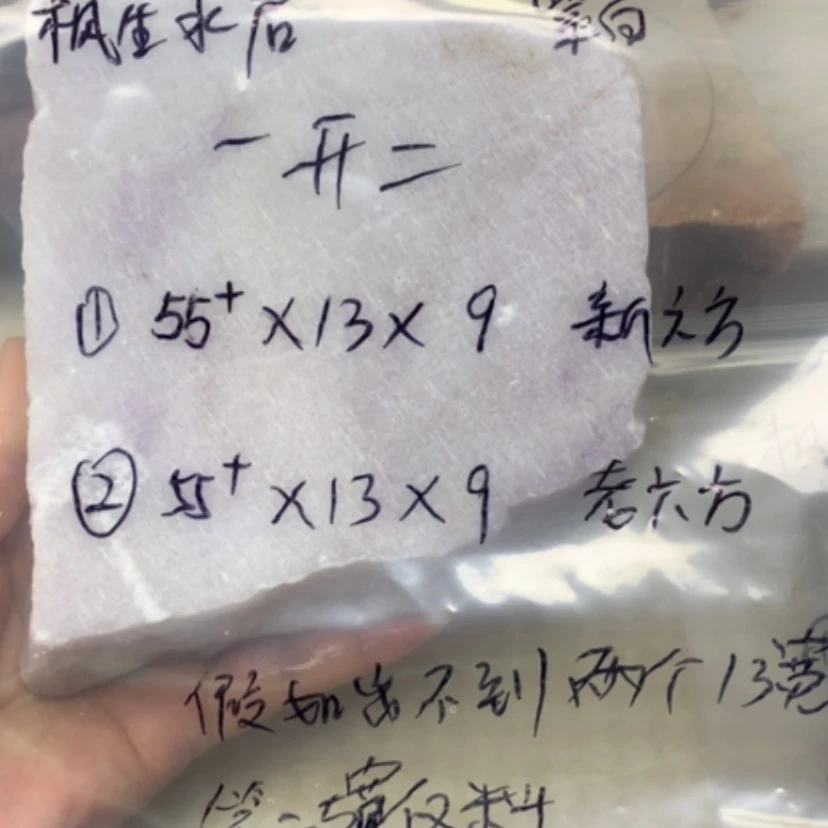 枫生水石 紫白
一开二
① 55⁺×13×9 新六方
② 55⁺×13×9 老六方
假如出不到两个13宽
料